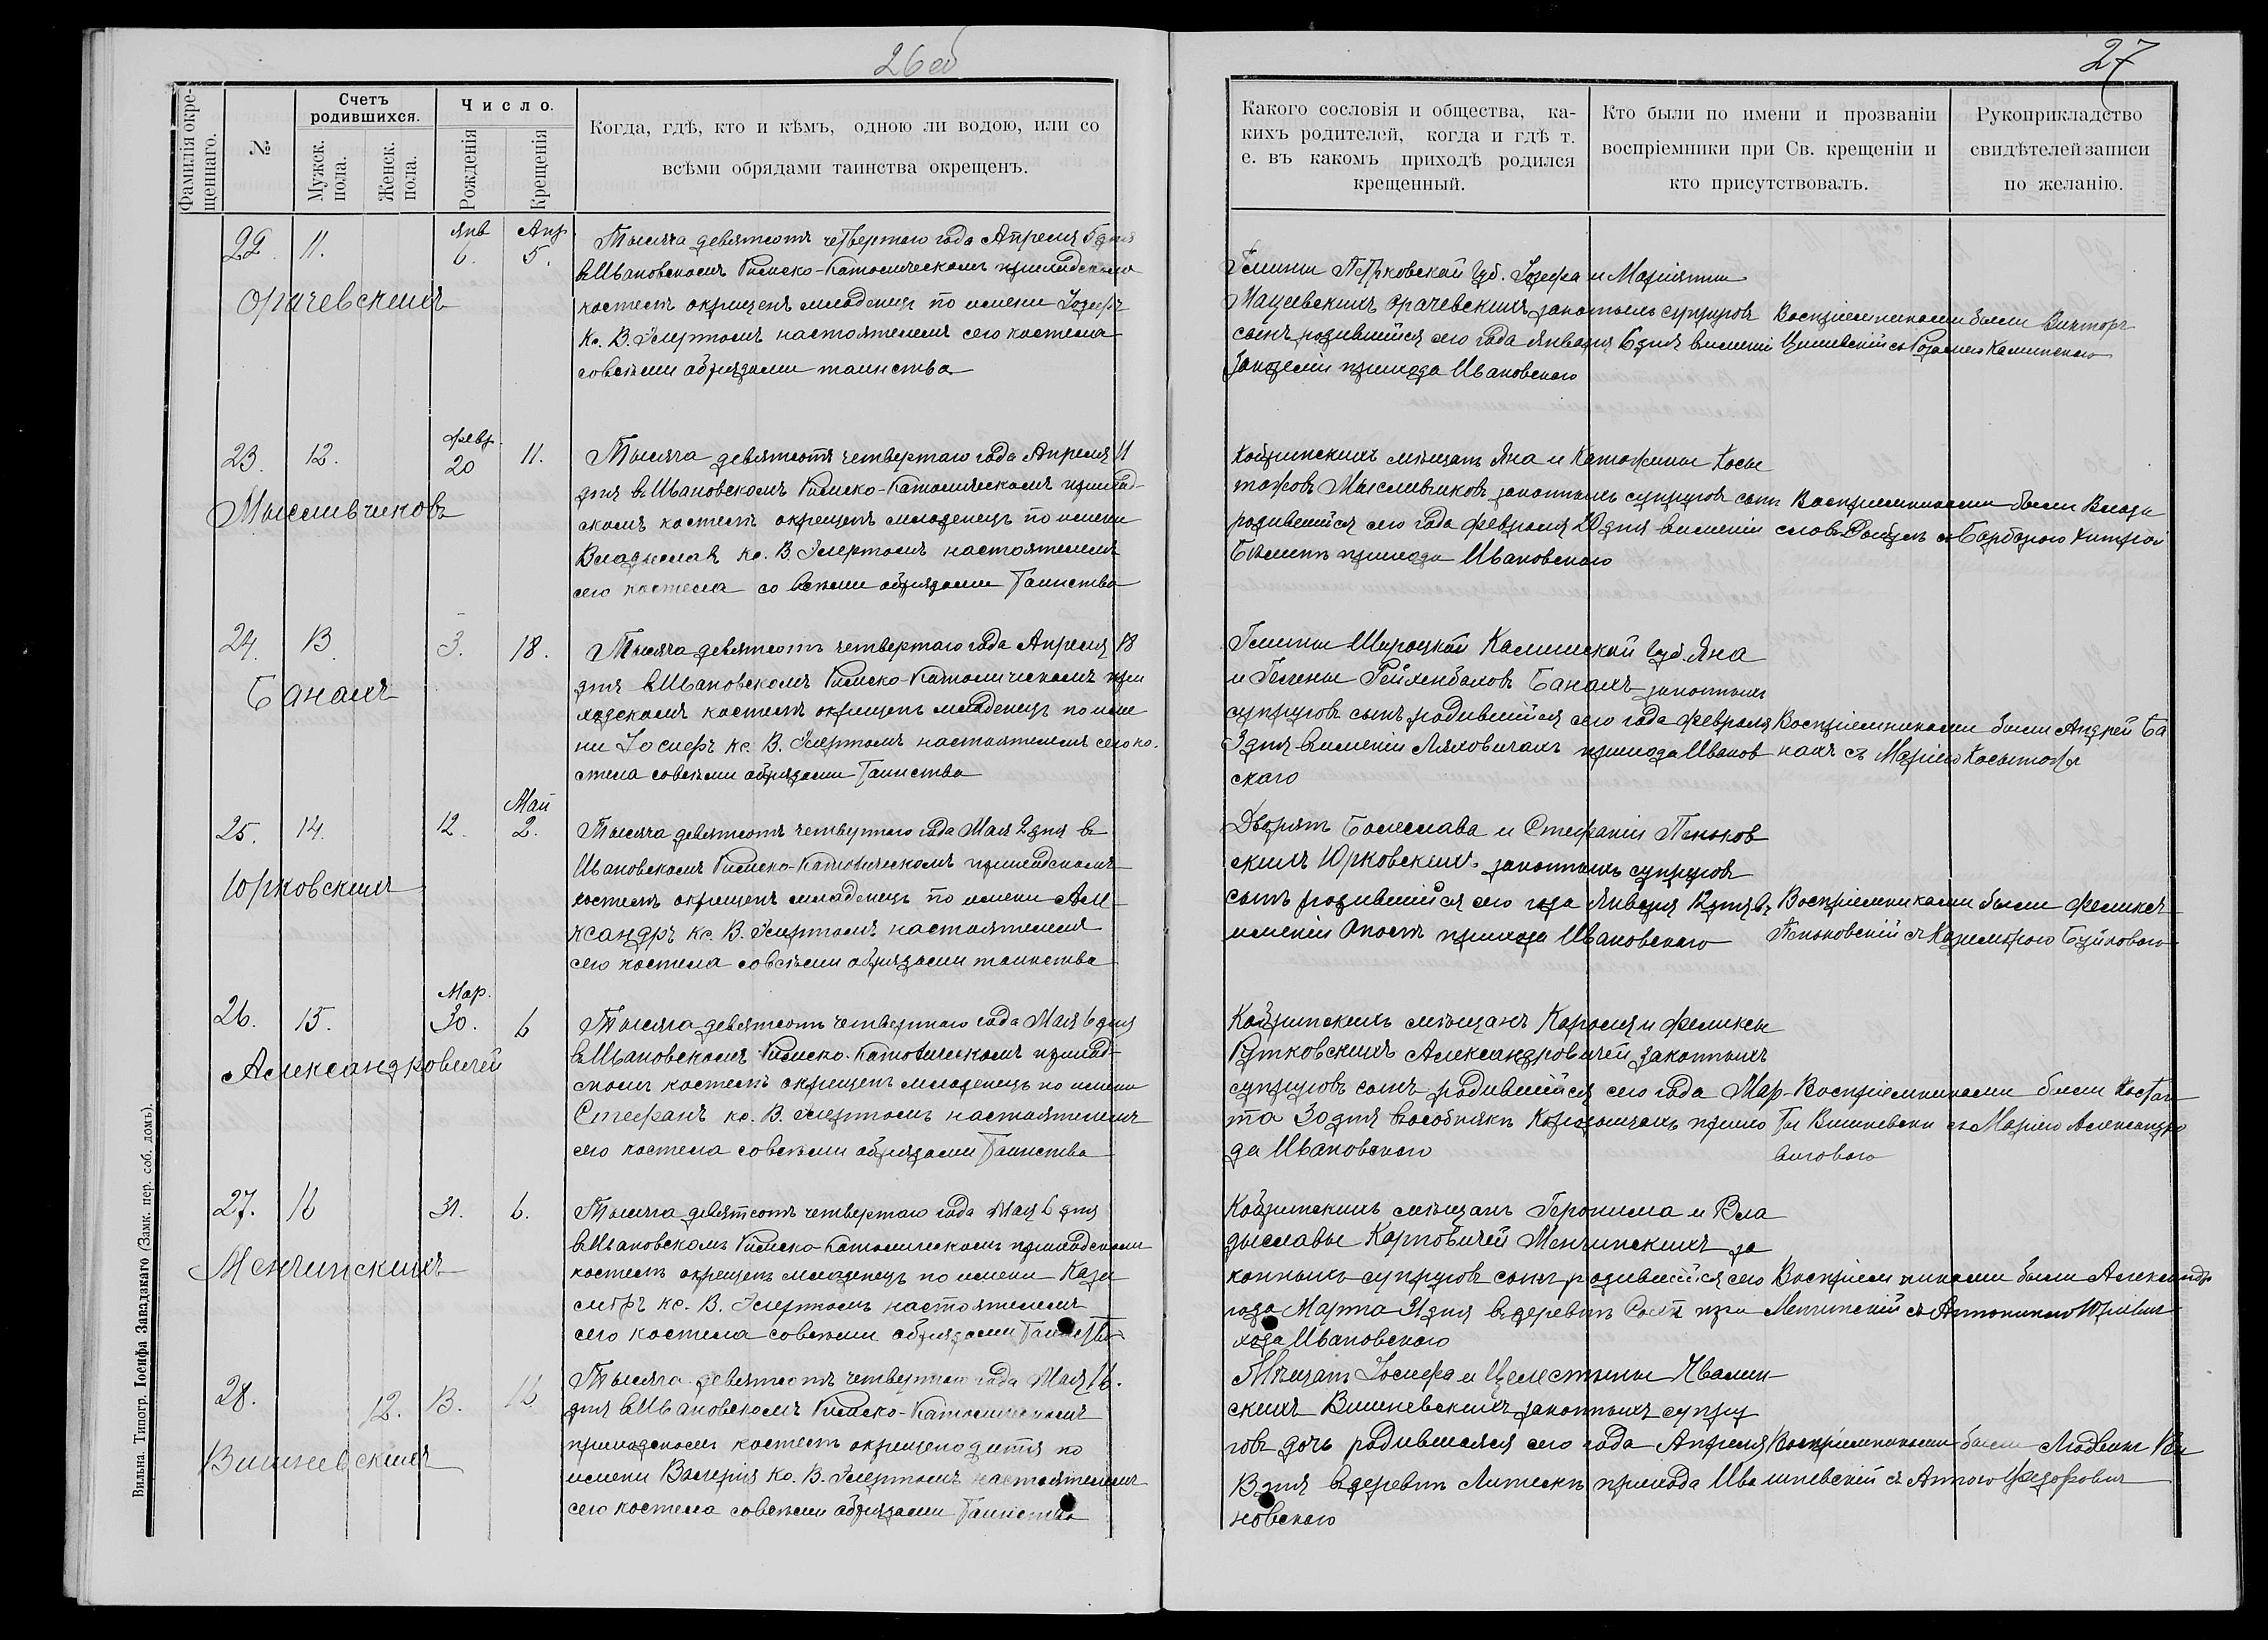 26 об
27
Фамилія окре-
щеннаго.
№
Счетъ
родившихся.
Мужск.
пола.
Женск.
пола.
Число.
Рожденія
Крещенія
Когда, гдѣ, кто и кѣмъ, одною ли водою, или со
всѣми обрядами таинства окрещенъ.
Какого сословія и общества, ка-
кихъ родителей, когда и гдѣ т.
е. въ какомъ приходѣ родился
крещенный.
Кто были по имени и прозванію
воспріемники при Св. крещеніи и
кто присутствовалъ.
Рукоприкладство
свидѣтелей записи
по желанію.
22. 11. Янв 6. Апр. 5.
Орачевскихъ
Тысяча девятсотъ четвертаго года Апреля 5 дня
в Ивановскомъ Римско-Католическомъ приходскомъ
костелѣ окрещенъ младенецъ по имени Іозефъ
Кс. В. настоятелемъ сего костела
со всѣми обрядами таинства
Гмины Петрковской губ. Іозефа и Маріянны
Мацеевскихъ Орачевскихъ законныхъ супруговъ
сынъ родившійся сего года Января 6 дня в имѣніи
прихода Ивановского
Воспріемниками были Викторъ
съ Розалею Калинского
23. 12. февр. 20 11.
Мысливчиковъ
Тысяча девятсотъ четвертаго года Апреля 11
дня в Ивановскомъ Римско-Католическомъ приход-
скомъ костелѣ окрещенъ младенецъ по имени
Владыслав кс. В. настоятелемъ
сего костела со всѣми обрядами Таинства
Кобринскихъ мѣщанъ Яна и Катожины Косы
тожовъ Мысливчиковъ законныхъ супруговъ сынъ
родившійся сего года февраля 20 дня в имѣніи
прихода Ивановского
Воспріемниками были Влады
славъ съ Барбарою
24. 13 3. 18.
Банахъ
Тысяча девятсотъ четвертаго года Апреля 18
дня в Ивановскомъ Римско-Католическомъ при
ходскомъ костелѣ окрещенъ младенецъ по име
ни Іосифъ кс. В. настоятелемъ сего ко.
стела со всѣми обрядами Таинства
Гмины Калишской губ. Яна
и Гелены Рейхенбаховъ Банахъ законныхъ
супруговъ сынъ родившійся сего года февраля
3 дня в имѣніи Ляховичахъ прихода Иванов
скаго
Воспріемниками были Андрей Ба
нахъ съ Маріею
25. 14. 12. Май 2.
Юрковскихъ
Тысяча девятсотъ четвертаго года Мая 2 дня в
Ивановскомъ Римско-Католическомъ приходскомъ
костелѣ окрещенъ младенецъ по имени Але
ксандръ кс. В. настоятелемъ
сего костела со всѣми обрядами таинства
Дворянъ Болеслава и Стефаніи Пеньков
скихъ Юрковскихъ законныхъ супруговъ
сынъ родившійся сего года Января 12 дня въ
имѣніи Ополѣ прихода Ивановского
Воспріемниками были Феликсъ
Пеньковскій съ Казимирою
26. 15. Мар. 30. 6
Александровичей
Тысяча девятсотъ четвертаго года Мая 6 дня
в Ивановскомъ Римско-Католическомъ приход-
скомъ костелѣ окрещенъ младенецъ по имени
Стефанъ кс. В. настоятелемъ
сего костела со всѣми обрядами Таинства
Кобринскихъ мѣщанъ Кароля и Феликсы
Рутковскихъ Александровичей законныхъ
супруговъ сынъ родившійся сего года Мар-
та 30 дня прихо
да Ивановского
Воспріемниками были Костан
ты Вишневски съ Маріею Александро
вичового
27. 16 31. 6.
Менчинскихъ
Тысяча девятсотъ четвертаго года Мая 6 дня
в Ивановскомъ Римско-Католическомъ приходскомъ
костелѣ окрещенъ младенецъ по имени Кази
миръ кс. В. настоятелемъ
сего костела со всѣми обрядами Таинства
Кобринскихъ мѣщанъ Геронима и Вла
дыславы Карповичей Менчинскихъ за
конныхъ супруговъ сынъ родившійся сего
года Марта 31 дня в деревнѣ при
хода Ивановского
Воспріемниками были Александръ
Менчинскій съ Антониною
28. 12. 13. 16
Вишневскихъ
Тысяча девятсотъ четвертаго года Мая 16.
дня в Ивановскомъ Римско-Католическомъ
приходскомъ костелѣ окрещено дитя по
имени Валерія кс. В. настоятелемъ
сего костела со всѣми обрядами Таинства
Мѣщанъ Іосифа и Целестыны
скихъ Вишневскихъ законныхъ супру
говъ дочь родившаяся сего года Апреля
13 дня в деревнѣ прихода Ива
новского
Воспріемниками были Людвик Ви
шневскій съ Анною Федорович
Вильна. Типогр. Іосифа Завадзкаго (Замк. пер. соб. домъ).